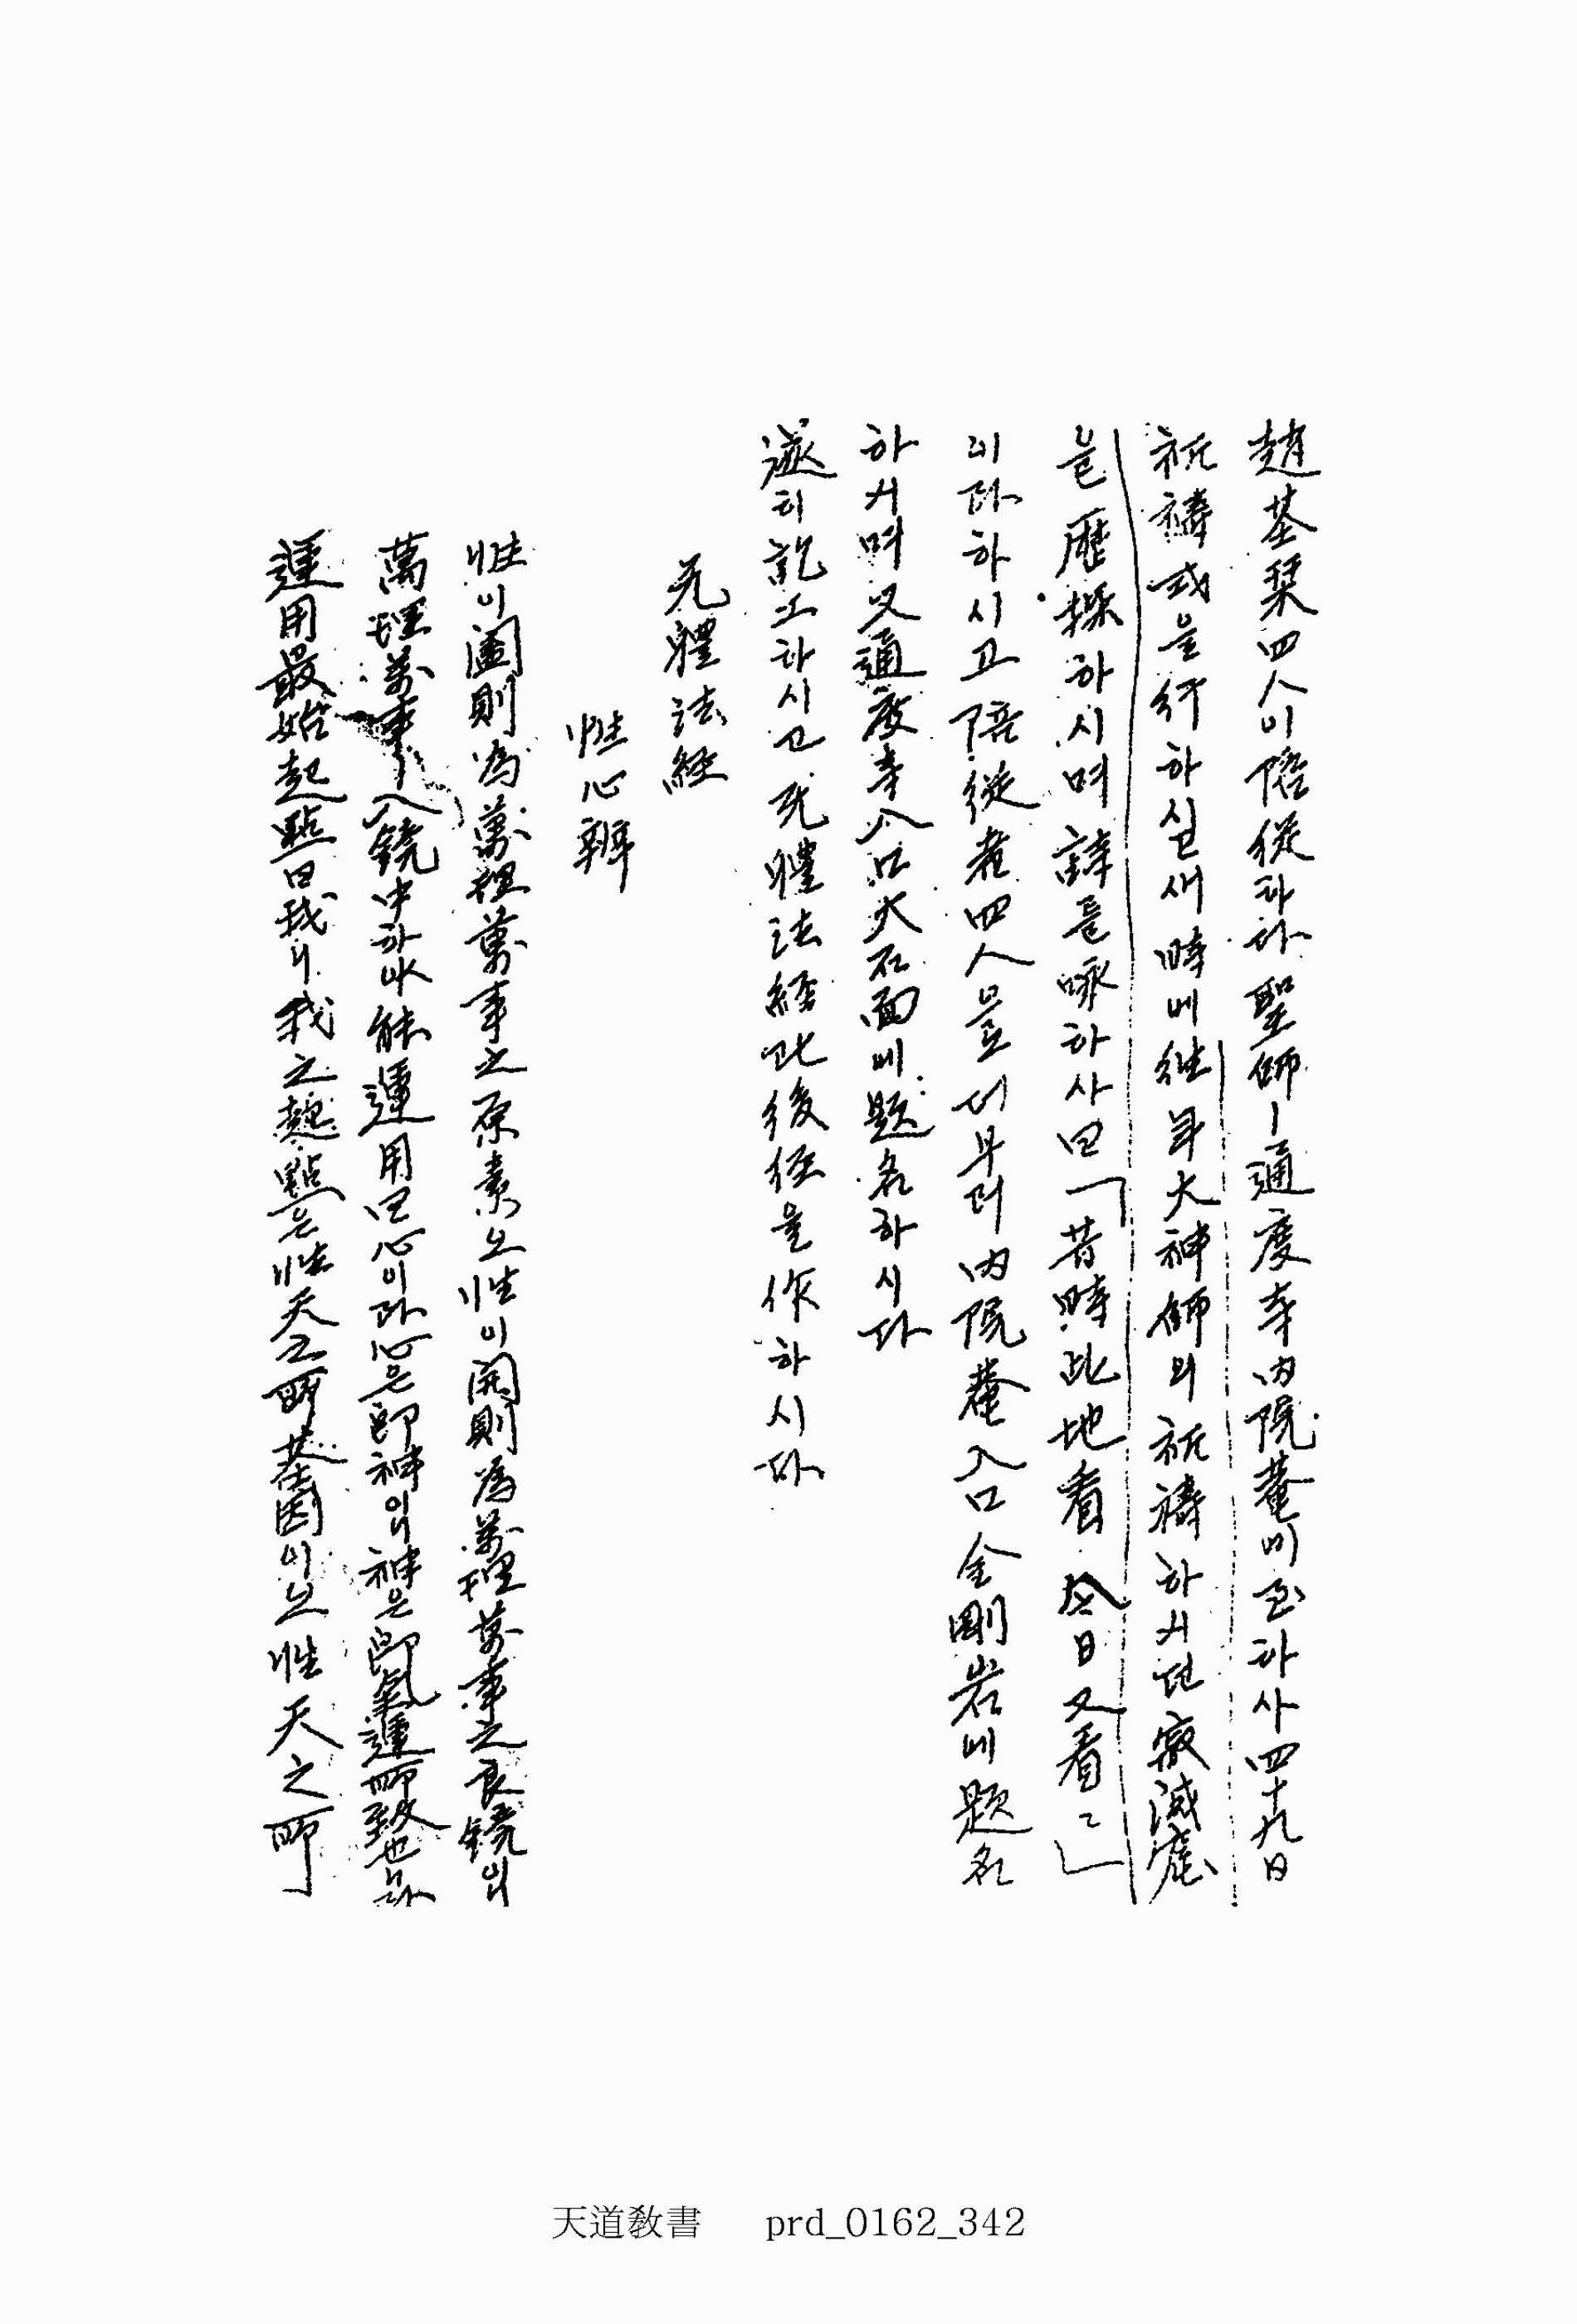 趙基栞四人이陪從하다聖師ㅣ通度寺內院菴에至하사四十九日
祈禱式을行하실새時에往年大神師의祈禱하시던寂滅窟
을歷探하시며詩를咏하사曰「昔時此地看今日又看々」
이라하시고陪從者四人으로더부러內院菴入口金剛岩에題名
하시며又通度寺入口大石面에題名하시다
遂히訖工하시고无體法經과後經을作하시다
无體法經
性心辨
性이闔則爲萬理萬事之原素오性이開則爲萬理萬事之良鏡이니
萬理萬事ㅣ入鏡中하야能運用曰心이라心은卽神이니神은卽氣運所致也니라
運用最始起點曰我니我之起點은性天之所基因이오性天之所